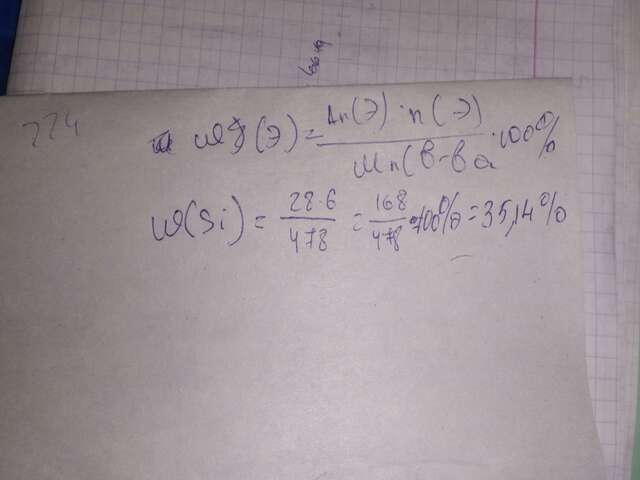 224
ω(Э) = Ar(Э)·n(Э) / Mr(в-ва · 100%
ω(Si) = 28·6 / 478 = 168 / 478 · 100% = 35,14%